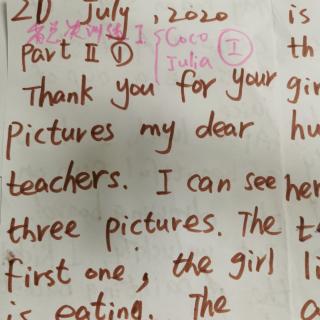 20 July, 2020
Part II ①
I { Coco
Julia
I
Thank you for your
pictures my dear
teachers. I can see
three pictures. The
first one, the girl
is eating. The
is
th
her